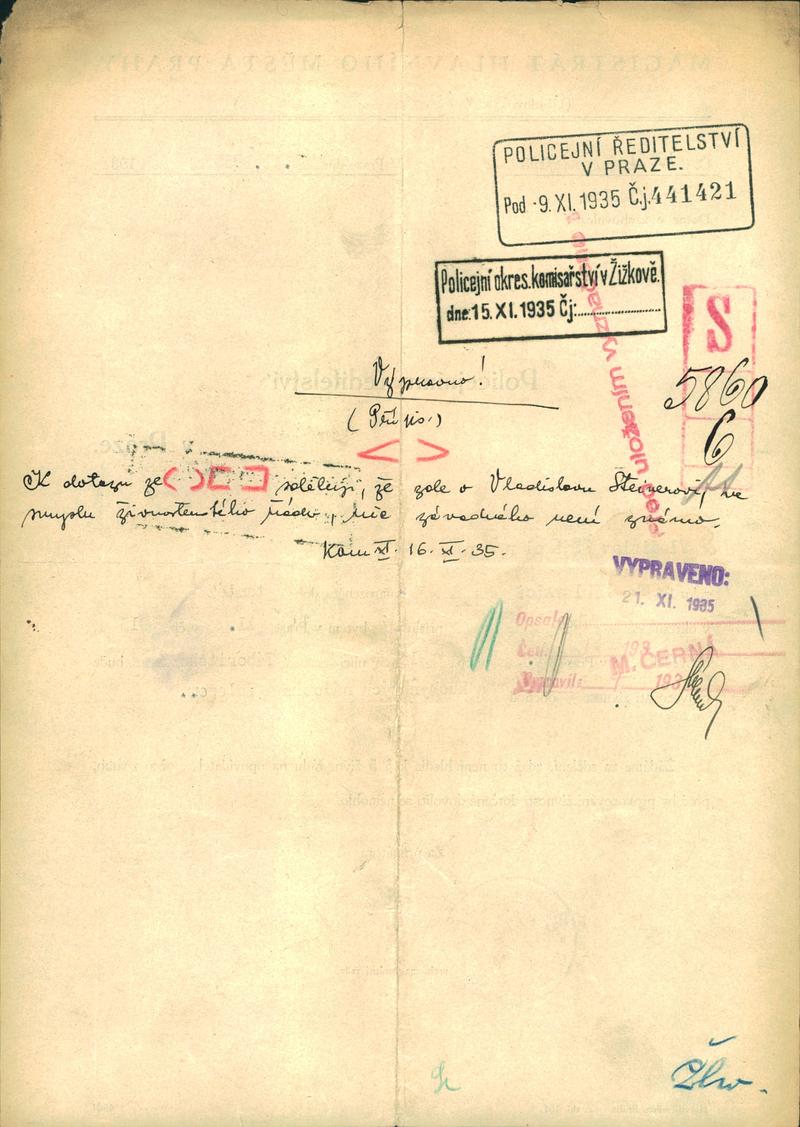 POLICEJNÍ ŘEDITELSTVÍ
V PRAZE.
Pod -9. XI. 1935 Č.j. 441421
Policejní okres. komisařství v Žižkově.
dne: 15. XI. 1935 Čj:
S
Vypraveno!
5860
6
K dotazu ze sděluji, že zde o Vladislavu Steinerovi, ve
smyslu živnostenského řádu, nic závadného není známo.
Kom XI. 16. XI. 35.
VYPRAVENO:
21. XI. 1935
Opsal:
Četl: 193
M. ČERNÁ
Vypravil: 193